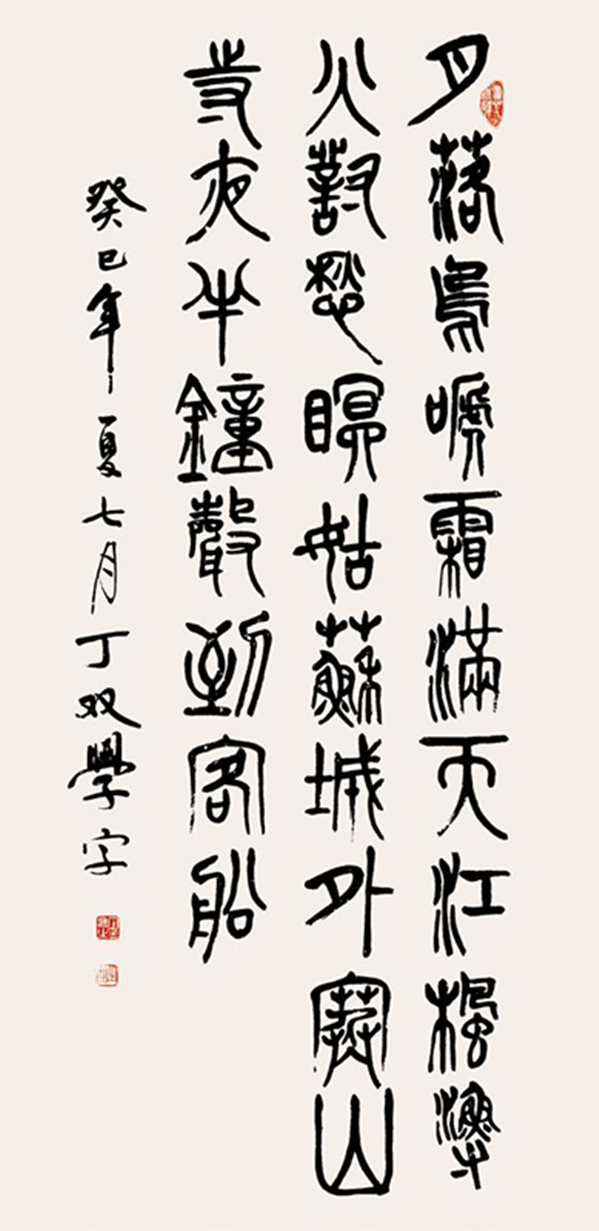 月落烏啼霜滿天江楓漁
火對愁眠姑蘇城外寒山
寺夜半鐘聲到客船
癸巳年夏七月丁双學字